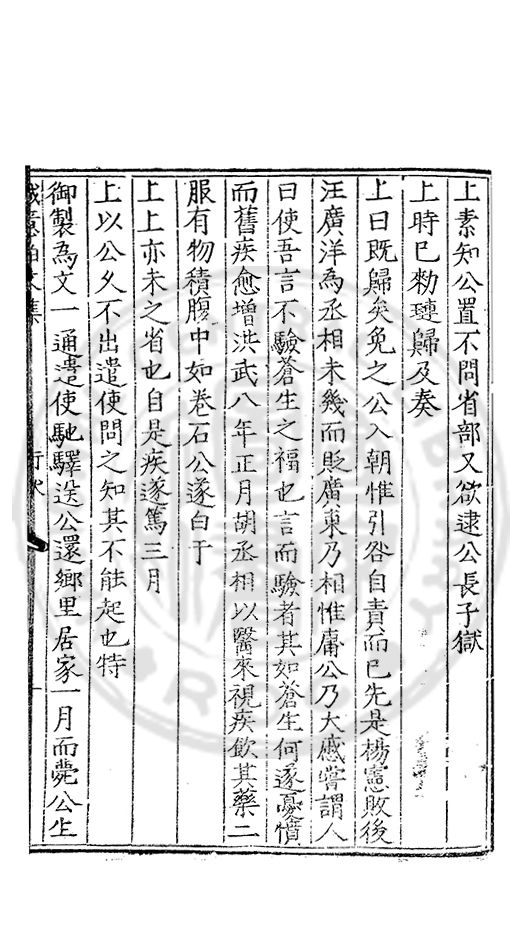 上素知公置不問省部又欲逮公長子獄
上時已勑璉歸及奏
上曰既歸矣免之公入朝惟引咎自責而已先是楊憲敗後
汪廣洋爲丞相未幾而貶廣東乃相惟庸公乃大慼嘗謂人
曰使吾言不驗蒼生之福也言而驗者其如蒼生何遂憂憤
而舊疾愈增洪武八年正月胡丞相以醫來視疾飲其藥二
服有物積腹中如卷石公遂白于
上上亦未之省也自是疾遂篤三月
上以公久不出遣使問之知其不能起也特
御製爲文一通遣使馳驛送公還鄉里居家一月而薨公生